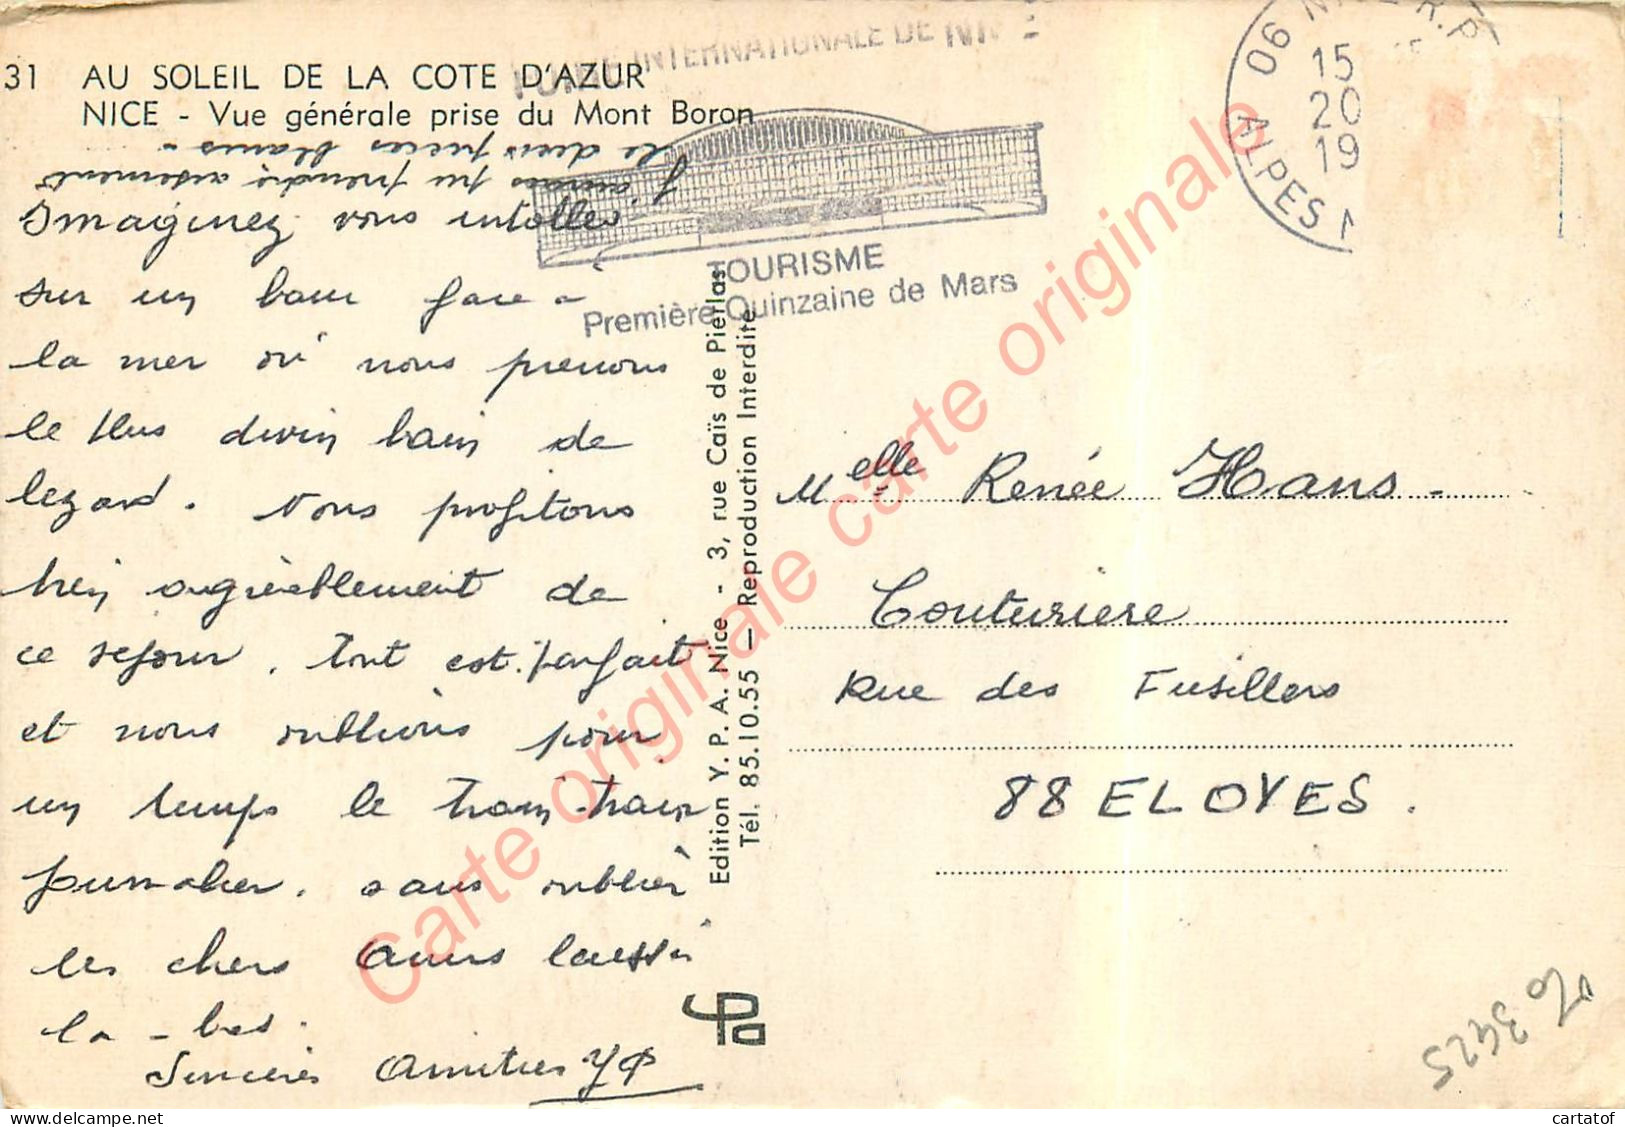 31 AU SOLEIL DE LA COTE D'AZUR
NICE - Vue générale prise du Mont Boron
INTERNATIONALE DE
TOURISME
Première Quinzaine de Mars
06 R.P
15
20
19
ALPES
J'aurais pu prendre aisement
les deux pièces blanes -
Imaginez vous intallés
sur un banc face a
la mer où nous prenons
le plus divin bain de
lezard. Nous profitons
bien agréablement de
ce sejour. Tout est parfait
et nous oublions pour
un temps le train-train
journalier. sans oublier
les chers amis laissés
la-bas.
Sincères Amitiés YP
Edition Y. P. A. Nice - 3, rue Caïs de Pierlas
Tél. 85.10.55 — Reproduction Interdite
Melle Renée Hans -
Couturiere
Rue des Fusillers
88 ELOYES.
Carte originale carte originale
cartatof